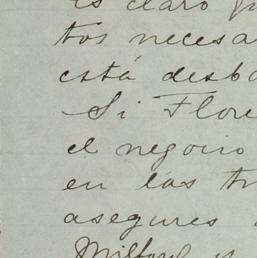 es claro
tos necesa
está desba
Si Flore
el negocio
en las tr
asegures